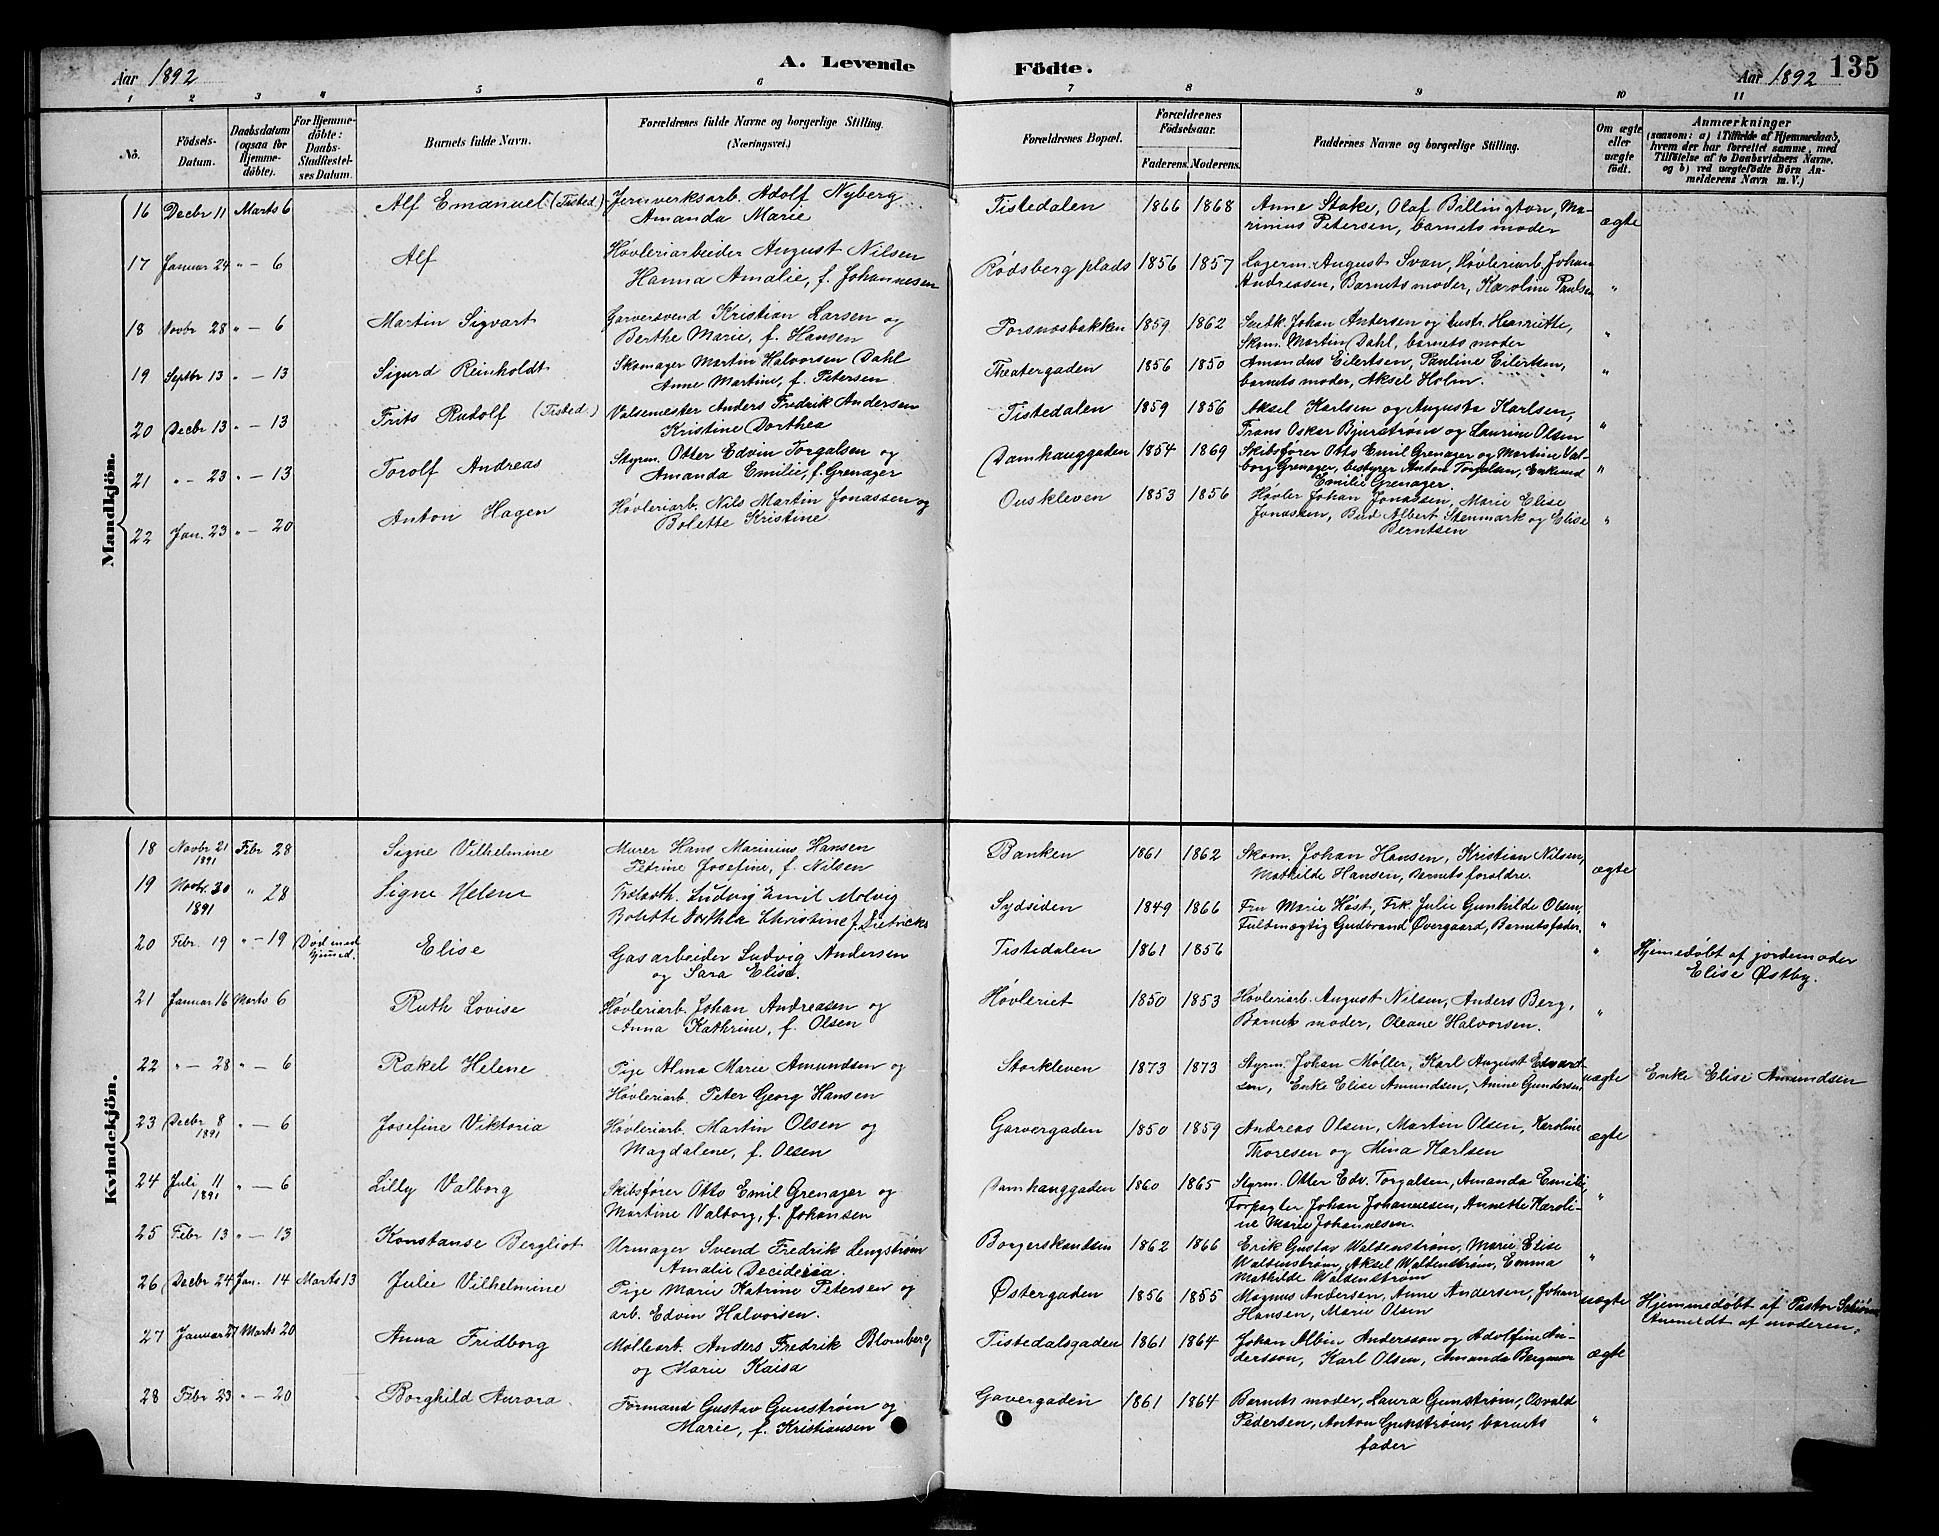 Aar 1892
A. Levende Födte.
Aar 1892
135
1 2 3 4 5 6 7 8 9 10 11
No.
Födsels-
Datum.
Daabsdatum
(ogsaa for
Hjemme-
döbte).
For Hjemme-
döbte:
Daabs-
Stadfæstel-
ses Datum.
Barnets fulde Navn.
Forældrenes fulde Navne og borgerlige Stilling.
(Næringsvei.)
Forældrenes Bopæl.
Forældrenes
Födselsaar.
Faderens. Moderens.
Faddernes Navne og borgerlige Stilling.
Om ægte
eller
uægte
födt.
Anmærkninger
(saasom: a) i Tilfælde af Hjemmedaab,
hvem der har forrettet samme, med
Tilföielse af to Daabsvidners Navne,
og b) ved uægtefödte Börn An-
melderens Navn m. V.)
Mandkjön.
16 Decbr 11 Marts 6 Alf Emanuel (Tisted.) Jernverksarb. Adolf Nyberg Tistedalen 1866 1868 Anne Stoke, Olaf Billington, Ma- ægte
Amanda Marie rinius Petersen, barnets moder
17 Januar 24 " — 6 Alf Høvleriarbeider August Nilsen Rødsberg plads 1856 1857 Lagerm. August Svan, Høvleriarb. Johan
Hanna Amalie, f. Johannesen Andreasen, Barnets moder, Karoline Paulsen "
18 Novbr 28 " — 6 Martin Sigvart Garversvend Kristian Larsen og Porsnesbakken 1859 1862 Johan Andersen og hustr. Henriette, "
Berthe Marie, f. Hansen Skom. Martin Dahl, barnets moder
19 Septbr 13 " — 13 Sigurd Reinholdt Skomager Martin Halvorsen Dahl Theatergaden 1856 1850 Amandus Eilertsen, Pauline Eilertsen, "
Anne Martine, f. Petersen barnets moder, Aksel Holm.
20 Decbr 13 " — 13 Frits Rudolf (Tisted.) Valsemester Anders Fredrik Andersen Tistedalen 1859 1856 Aksel Karlsen og Augusta Karlsen, "
Kristine Dorthea Frans Oskar Bjurstrøm og Laurine Olsen
21 " — 23 " — 13 Torolf Andreas Styrm. Otter Edvin Torgalsen og Damhauggaden 1854 1869 Skibsfører Otto Emil Grenager og Martine Val- "
Amanda Emilie, f. Grenager borg Grenager, bestyrer Anton Torgalsen,
Emilie Grenager.
22 Jan. 23 " — 20 Anton Hagen Høvleriarb. Nils Martin Jonassen og Ouskleven 1853 1856 Høvler Johan Jonassen, Marie Elise "
Bolette Kristine Jonassen, Bud Albert Stenmark og Elise
Berntsen
Kvindekjön.
18 Novbr 21 1891 Febr 28 Signe Vilhelmine Murer Hans Marinius Hansen Banken 1861 1862 Skom. Johan Hansen, Kristian Nilsen, ægte
Petrine Josefine, f. Nilsen Mathilde Hansen, Barnets forældre.
19 Novbr. 30 1891 " 28 Signe Helene Trælasth. Ludvig Emil Molvig Sydsiden 1849 1866 Fru Marie Høst, Frk. Julie Gunhilde Olsen, "
Bolette Dorthea Christine f. Dietrichs Fuldmægtig Gudbrand Øvergaard, Barnets fader.
20 Febr. 19 " — 19 Død Elise Gasarbeider Ludvig Andersen Tistedalen 1861 1856 " Hjemmedøbt af jordemoder
og Sara Elise. Elise Østby.
21 Januar 16 Marts 6 Ruth Lovise Høvleriarb. Johan Andreasen og Høvleriet 1850 1853 Høvleriarb. August Nilsen, Anders Berg, "
Anna Kathrine, f. Olsen Barnets moder, Oleane Halvorsen.
22 " — 28 " — 6 Rakel Helene Pige Alma Marie Amundsen og Storkleven 1873 1873 Styrm. Johan Møller, Karl August Edvard- uægte Enke Elise Amundsen
Høvleriarb. Peter Georg Hansen sen, Enke Elise Amundsen, Anine Gundersen
23 Decbr 8 1891 " — 6 Josefine Viktoria Høvleriarb. Martin Olsen og Garvergaden 1850 1859 Andreas Olsen, Martin Olsen, Karoline ægte
Magdalene, f. Olsen Thoresen og Mina Karlsen
24 Juli 11 1891 " — 6 Lilly Valborg Skibsfører Otto Emil Grenager og Damhauggaden 1860 1865 Styrm. Otter Edv. Torgalsen, Amanda Emilie, "
Martine Valborg, f. Johansen Forpagter Johan Johannesen, Annette Karoli-
ne Marie Johannesen.
25 Febr 13 " — 13 Konstanse Bergliot Urmager Svend Fredrik Lengstrøm Borgerskandsen 1862 1866 Erik Gustav Waldenstrøm, Marie Elise "
Amalie Decideria. Waldenstrøm, Aksel Waldenstrøm, Emma
Mathilde Waldenstrøm
26 Decbr 24 Jan. 14 Marts 13 Julie Vilhelmine Pige Marie Katrine Petersen og Østergaden 1856 1855 Magnus Andersen, Anne Andersen, Johan uægte Hjemmedøbt af Pastor
arb. Edvin Halvorsen. Hansen, Marie Olsen Anmeldt af moderen.
27 Januar 27 Marts 20 Anna Fridborg Møllearb. Anders Fredrik Blomberg Tistedalsgaden 1861 1864 Johan Albin Andersson og Adolfine An- ægte
og Marie Kaisa dersson, Karl Olsen, Amanda Bergman
28 Febr 23 " — 20 Borghild Aurora Formand Gustav Gunstrøm og Gavergaden 1861 1864 Barnets moder, Laura Gunstrøm, Osvald "
Marie, f. Kristiansen Pedersen, Anton Gunstrøm, barnets
fader